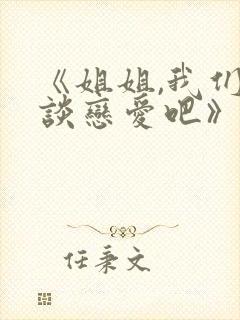 《姐姐,我们
談戀愛吧》
任秉文